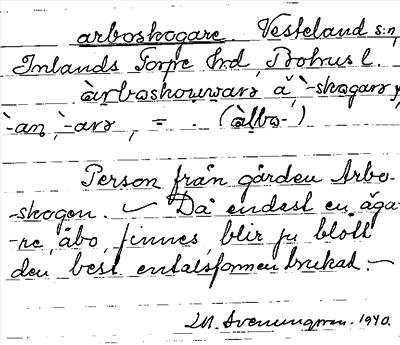 arboskogare. Vesteland s:n,
Inlands Torpe hd, Bohusl.
àrboskouwarə ǎ, `-skogarə,
`-an, `-arə, = . (àlbo-)
Person från gården Arbo-
-skogen. — Då endast en äga-
-re, åbo, finnes, blir ju blott
den best. entalsformen brukad. —
M. 1940.